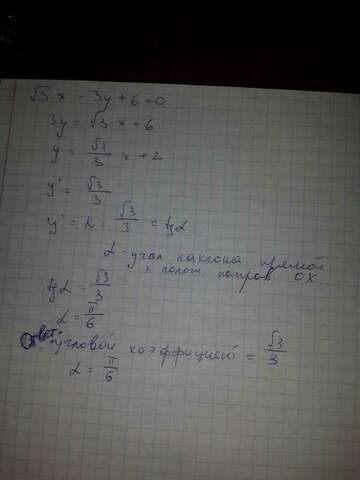 √3 x - 3y + 6 = 0
3y = √3 · x + 6
y = √3/3 x + 2
y' = √3/3
y' = k = √3/3 = tg α
α - угол наклона прямой
к полож. направ. OX
tg α = √3/3
α = π/6
Ответ: угловой коэффициент = √3/3
α = π/6